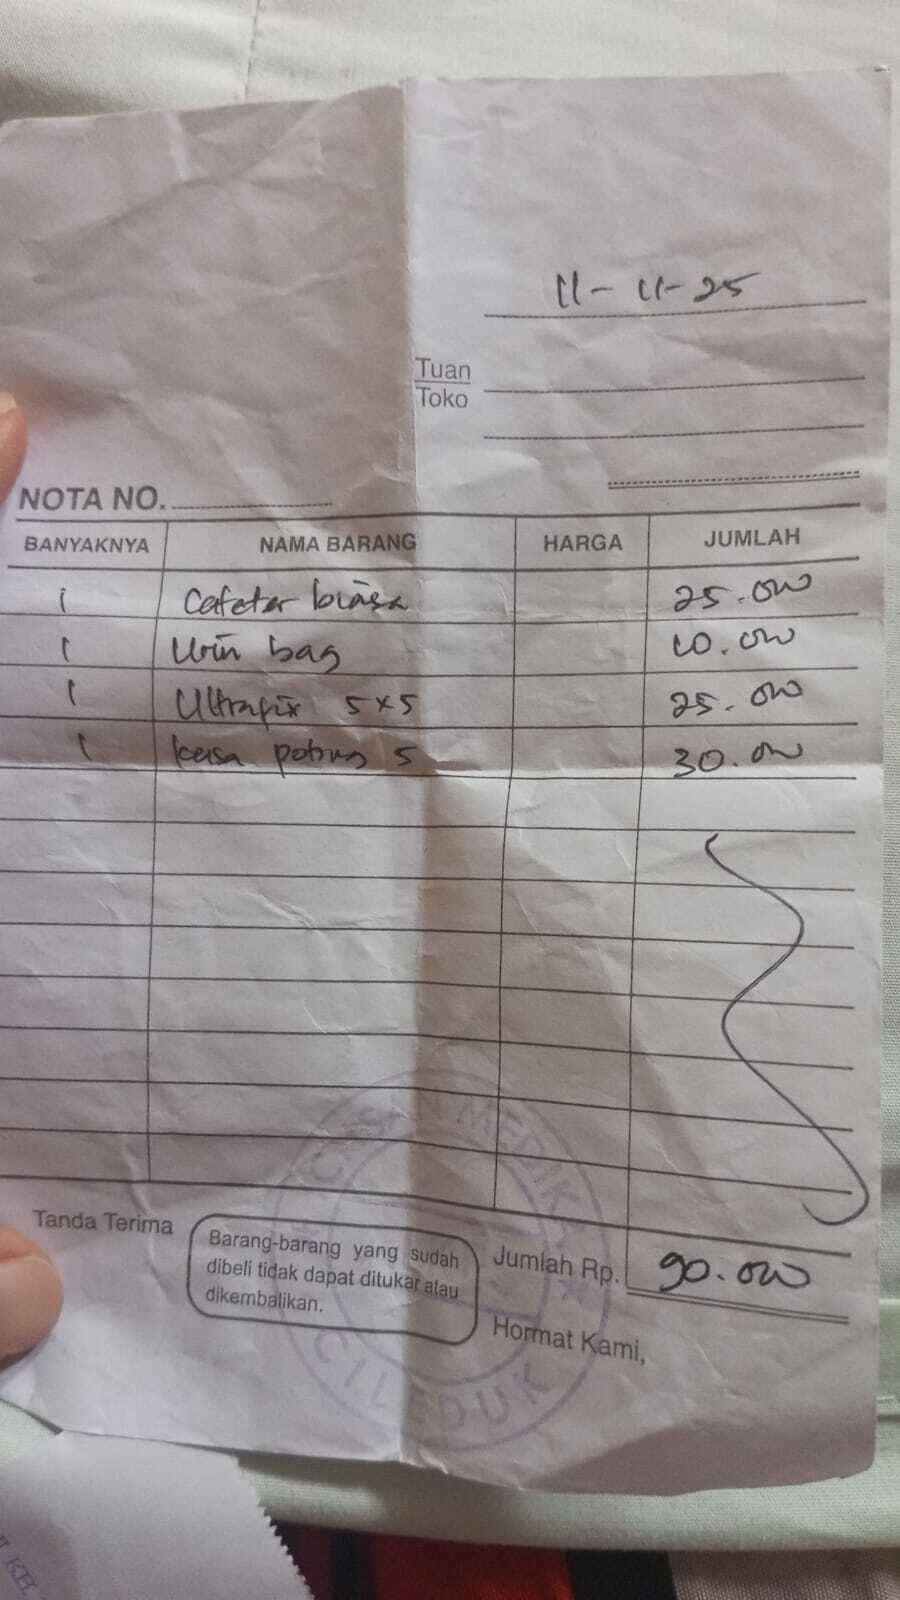 11-11-25
Tuan
Toko
NOTA NO.
BANYAKNYA NAMA BARANG HARGA JUMLAH
1 Cafeter biasa 25.000
1 Urin bag 10.000
1 Ultrafix 5x5 25.000
1 kasa potong 5 30.000
Tanda Terima
Barang-barang yang sudah
dibeli tidak dapat ditukar atau
dikembalikan.
Jumlah Rp. 90.000
Hormat Kami,
MEDIKA